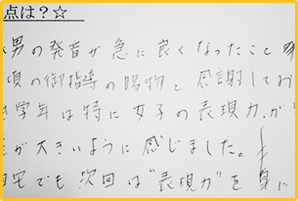 点は？☆
男の発音が急に良くなったこと
頃の御指導の賜物と感謝してお
学年は特に女子の表現力が
が大きいように感じました。
宅でも次回は“表現力”を身に